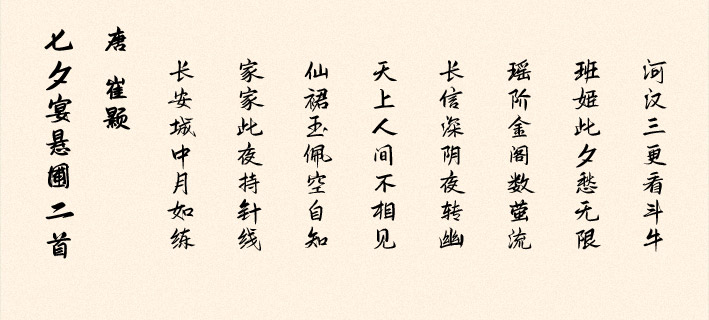 七夕宴悬圃二首
唐 崔颢
长安城中月如练
家家此夜持针线
仙裙玉佩空自知
天上人间不相见
长信深阴夜转幽
瑶阶金阁数萤流
班姬此夕愁无限
河汉三更看斗牛